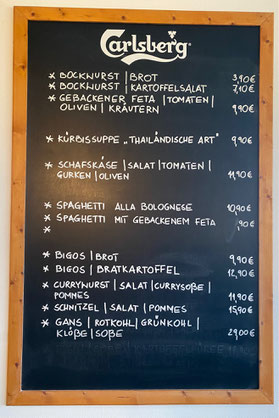 Carlsberg
* BOCKWURST | BROT 3,90€
* BOCKWURST | KARTOFFELSALAT 7,10€
* GEBACKENER FETA | TOMATEN |
OLIVEN | KRÄUTERN 9,90€
* KÜRBISSUPPE „THAILÄNDISCHE ART" 9,90€
* SCHAFSKÄSE | SALAT | TOMATEN |
GURKEN | OLIVEN 11,90€
* SPAGHETTI ALLA BOLOGNESE 10,90€
* SPAGHETTI MIT GEBACKENEM FETA ,90€
*
* BIGOS | BROT 9,90€
* BIGOS | BRATKARTOFFEL 12,90€
* CURRYWURST | SALAT | CURRYSOßE |
POMMES 11,90€
* SCHNITZEL | SALAT | POMMES 15,90€
* GANS | ROTKOHL | GRÜNKOHL |
KLÖßE | SOßE 29,00€